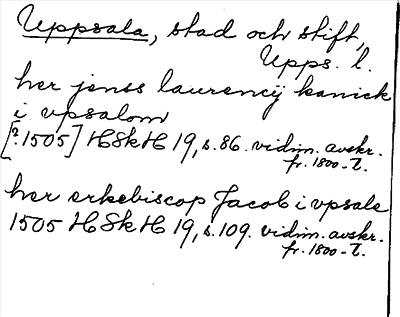 Uppsala, stad och stift,
Upps. l.
her jenss laurencij kanick
i vpsalom
[?1505] HSkH 19, s. 86. vidim. avskr.
fr. 1800-t.
her erkebiscop Jacob i vpsale
1505 HSkH 19, s. 109. vidim. avskr.
fr. 1800-t.